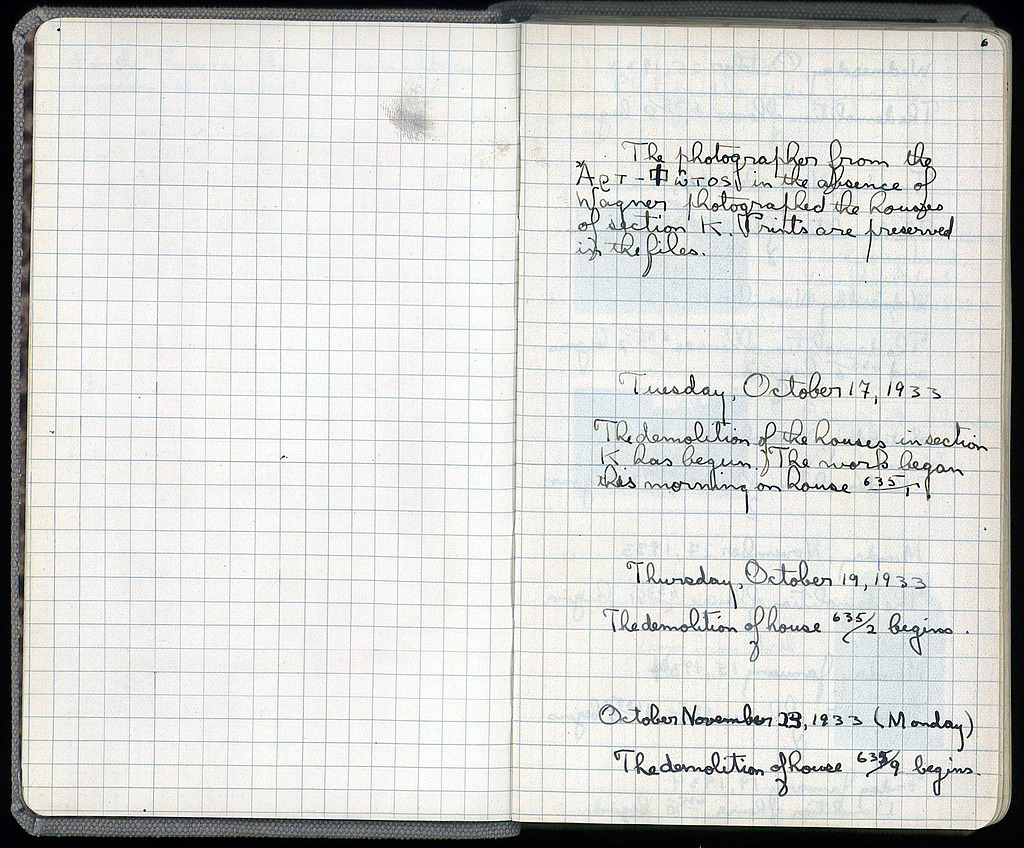 6
The photographer from the
Ἀρτ-Φῶτος in the absence of
Wagner photographed the houses
of section K. Prints are preserved
in the files.
Tuesday, October 17, 1933
The demolition of the houses in section
K has begun. The work began
this morning on house 635/1.
Thursday, October 19, 1933
The demolition of house 635/2 begins.
October November 23, 1933 (Monday)
The demolition of house 635/9 begins.